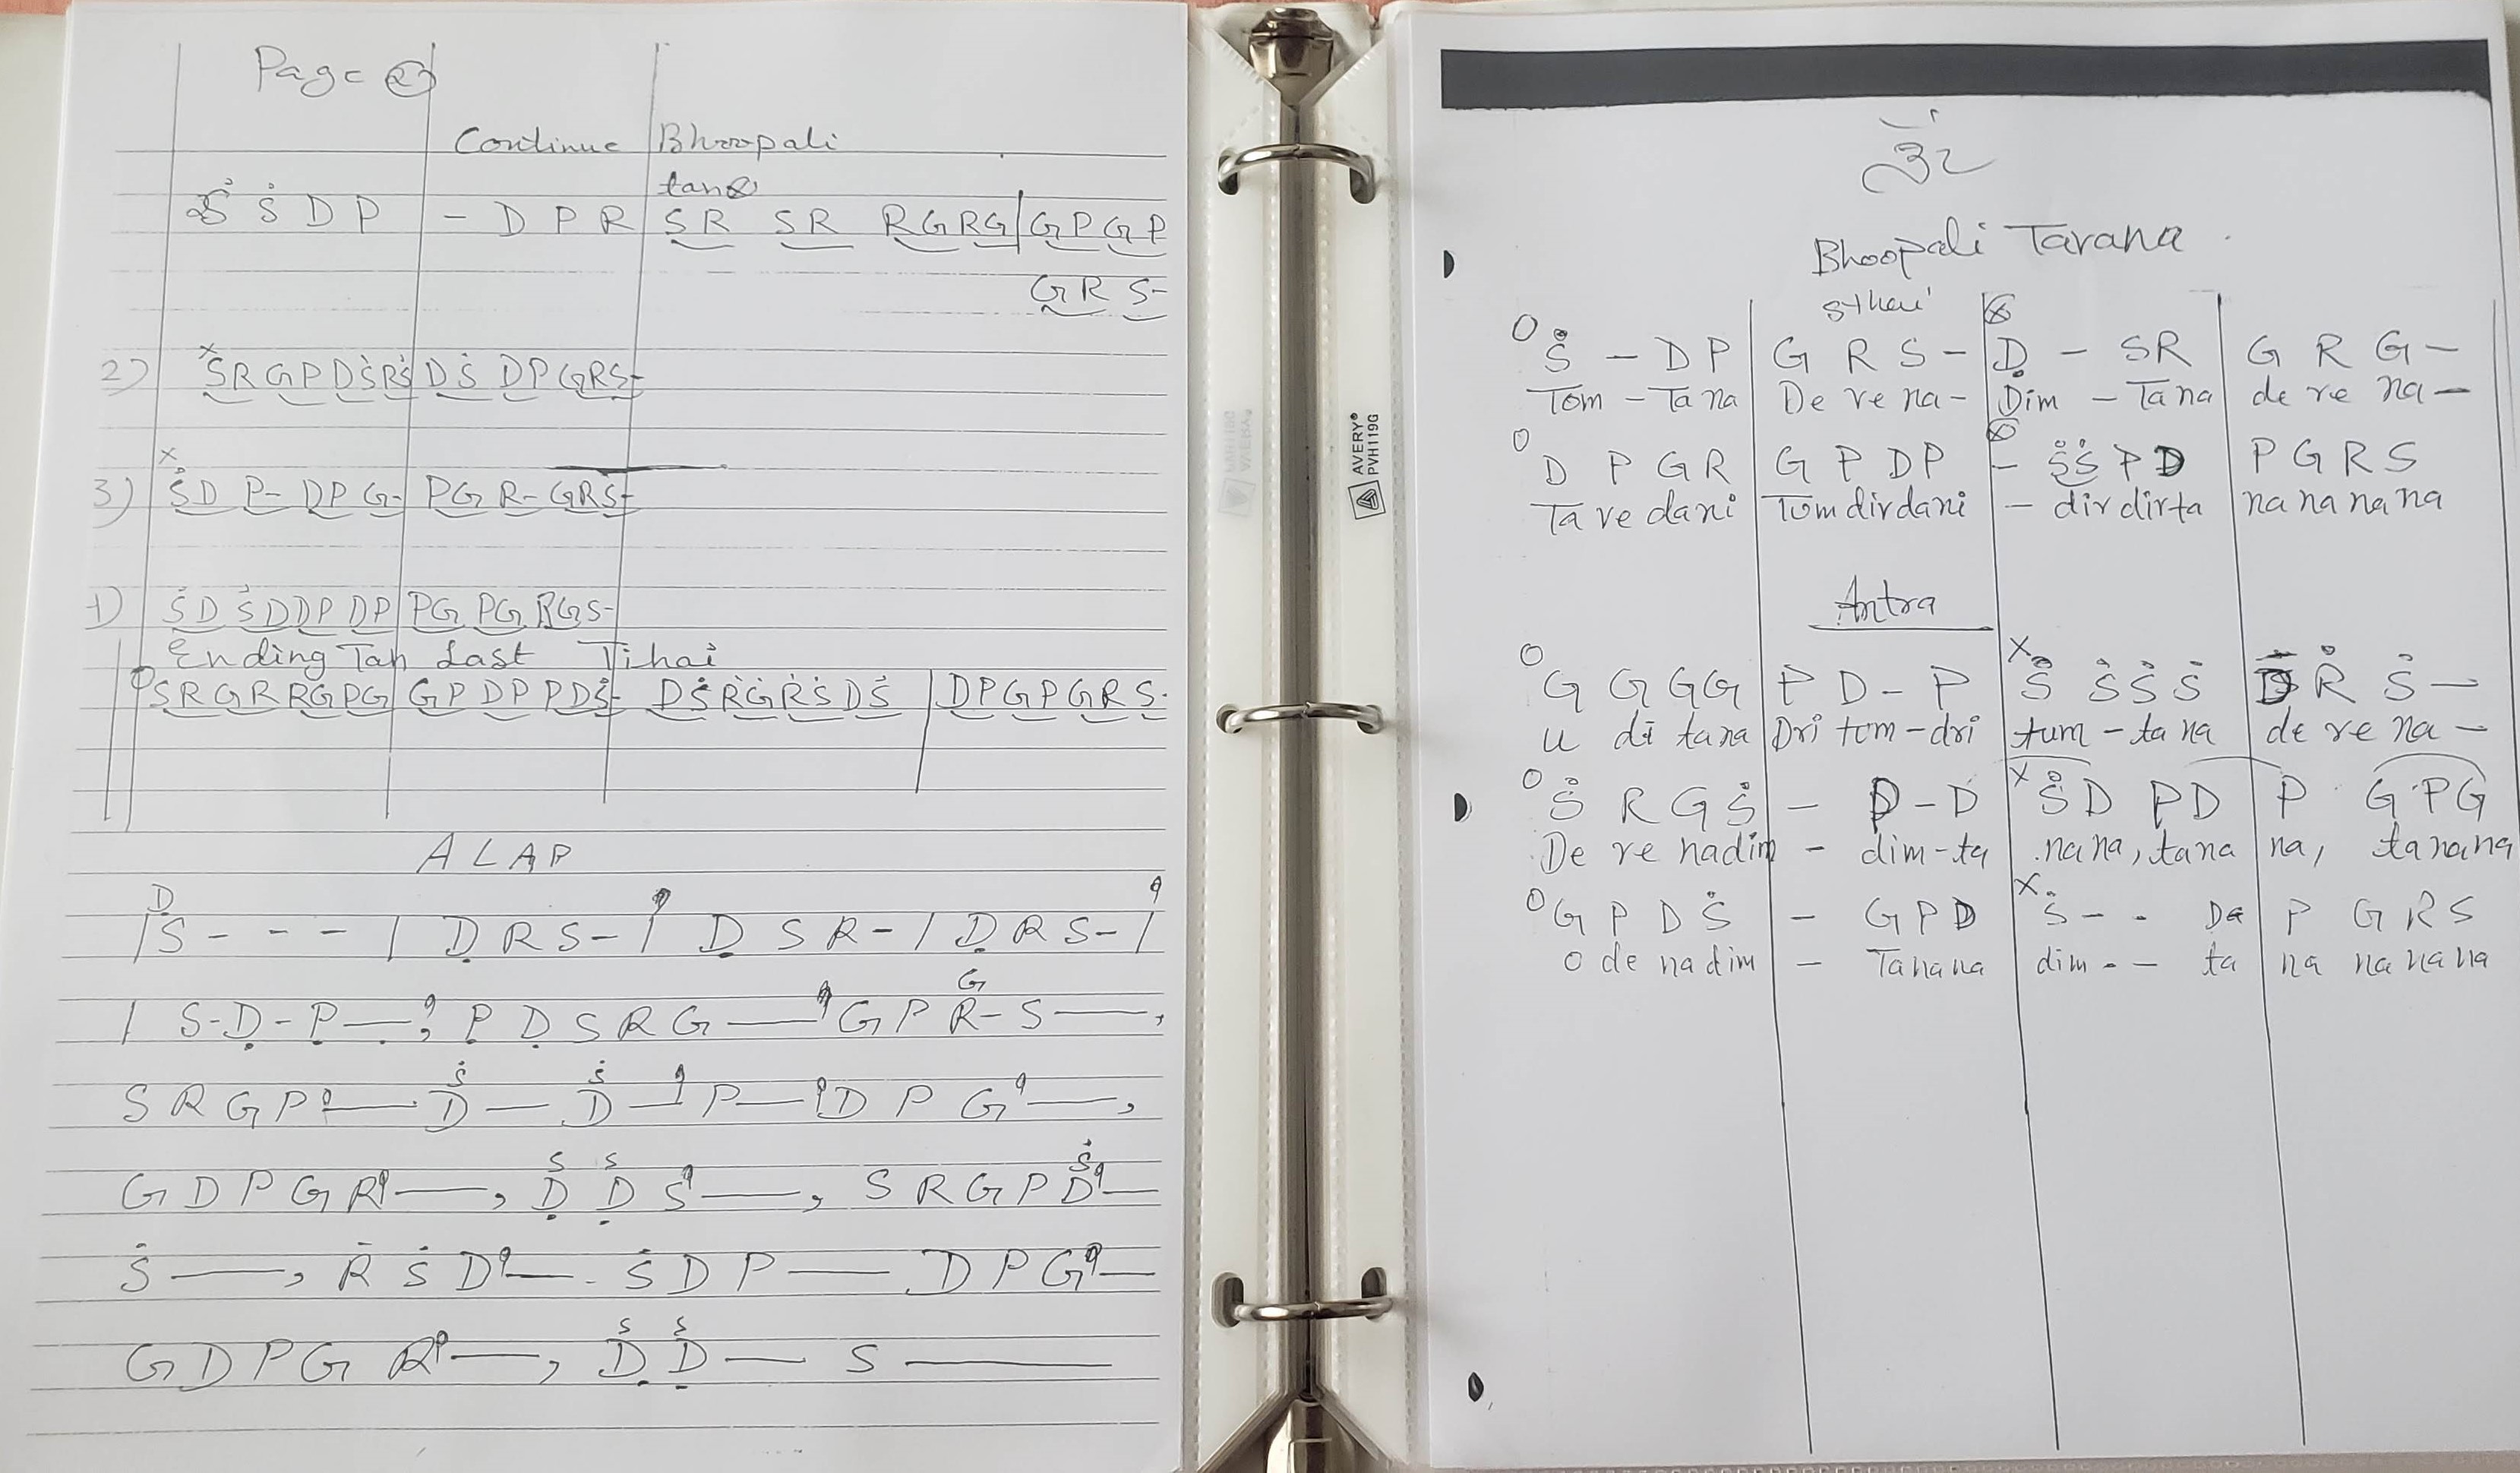 Page ②
Continue Bhoopali
tans
Ṡ Ṡ D P | - D P R | SR SR RGRG | GPGP
GRS-
2) x SRGPDṠRṠ | DṠ DPGRS-
3) x ṠD P- DPG- | PG R- GRS-
1) ṠDṠDDPDP | PG PG RGS-
Ending Tan Last Tihai
SRGRRGPG | GPDPPDṠ- | DṠṘĠṘṠDṠ | DPGPGRS-
ALAP
D
| S - - - | Ḍ R S - | Ḍ S R - | Ḍ R S - |
G
| S - Ḍ - P̣ —, P̣ Ḍ S R G — G P R - S —,
Ṡ Ṡ
S R G P — D — D — P — D P G —,
S S Ṡ
G D P G R —, Ḍ Ḍ S —, S R G P D —
Ṡ —, Ṙ Ṡ D — . Ṡ D P — D P G —
S S
G D P G R —, Ḍ Ḍ — S —
AVERY®
PVH119G
ॐ
Bhoopali Tarana
sthai
O Ṡ - D P | G R S - | ⊗ Ḍ - S R | G R G -
Tom - Ta na | De re na - | Dim - Tana | de re na -
O D P G R | G P D P | ⊗ - ṠṠ P D | P G R S
Ta re dani | Tom dir dani | - dir dirta | na na na na
Antra
O G G G G | P D - P | x Ṡ Ṡ Ṡ Ṡ | D Ṙ Ṡ -
u di tana | Dri tom - dri | tum - ta na | de re na -
O Ṡ R G Ṡ | - D - D | x Ṡ D P D | P G P G
De re nadim | - dim - ta | nana, tana | na, tanana
O G P D Ṡ | - G P D | x Ṡ - - D | P G R S
o de na dim | - Tanana | dim - - ta | na na na na